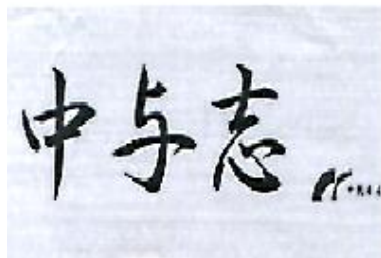 中与志